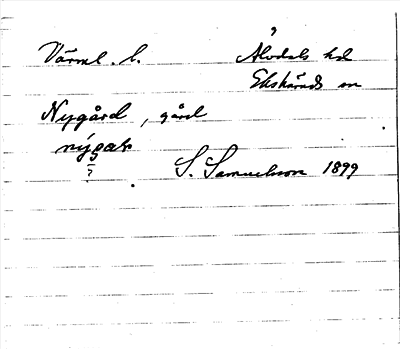 Värml. l. Älvdals hd
Ekshärads sn
Nygård, gård
nýgaʀ
?
S. Samuelsson 1899